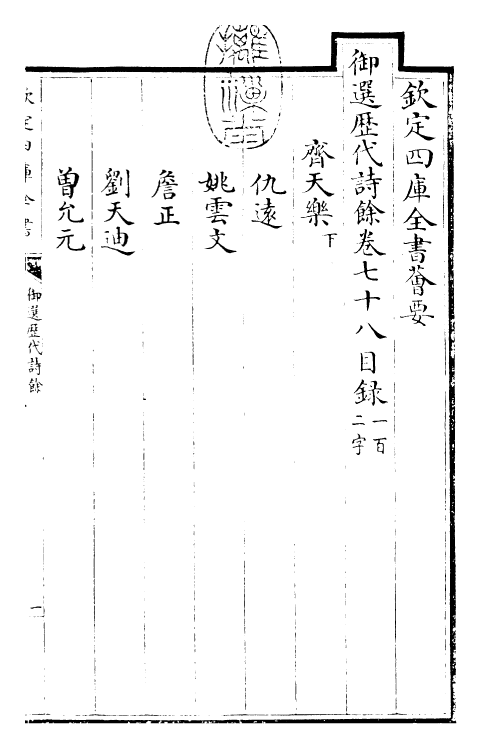 欽定四庫全書薈要
御選歷代詩餘卷七十八目錄 一百二字
齊天樂 下
仇遠
姚雲文
詹正
劉天迪
曾允元
欽定四庫全書
御選歷代詩餘
一